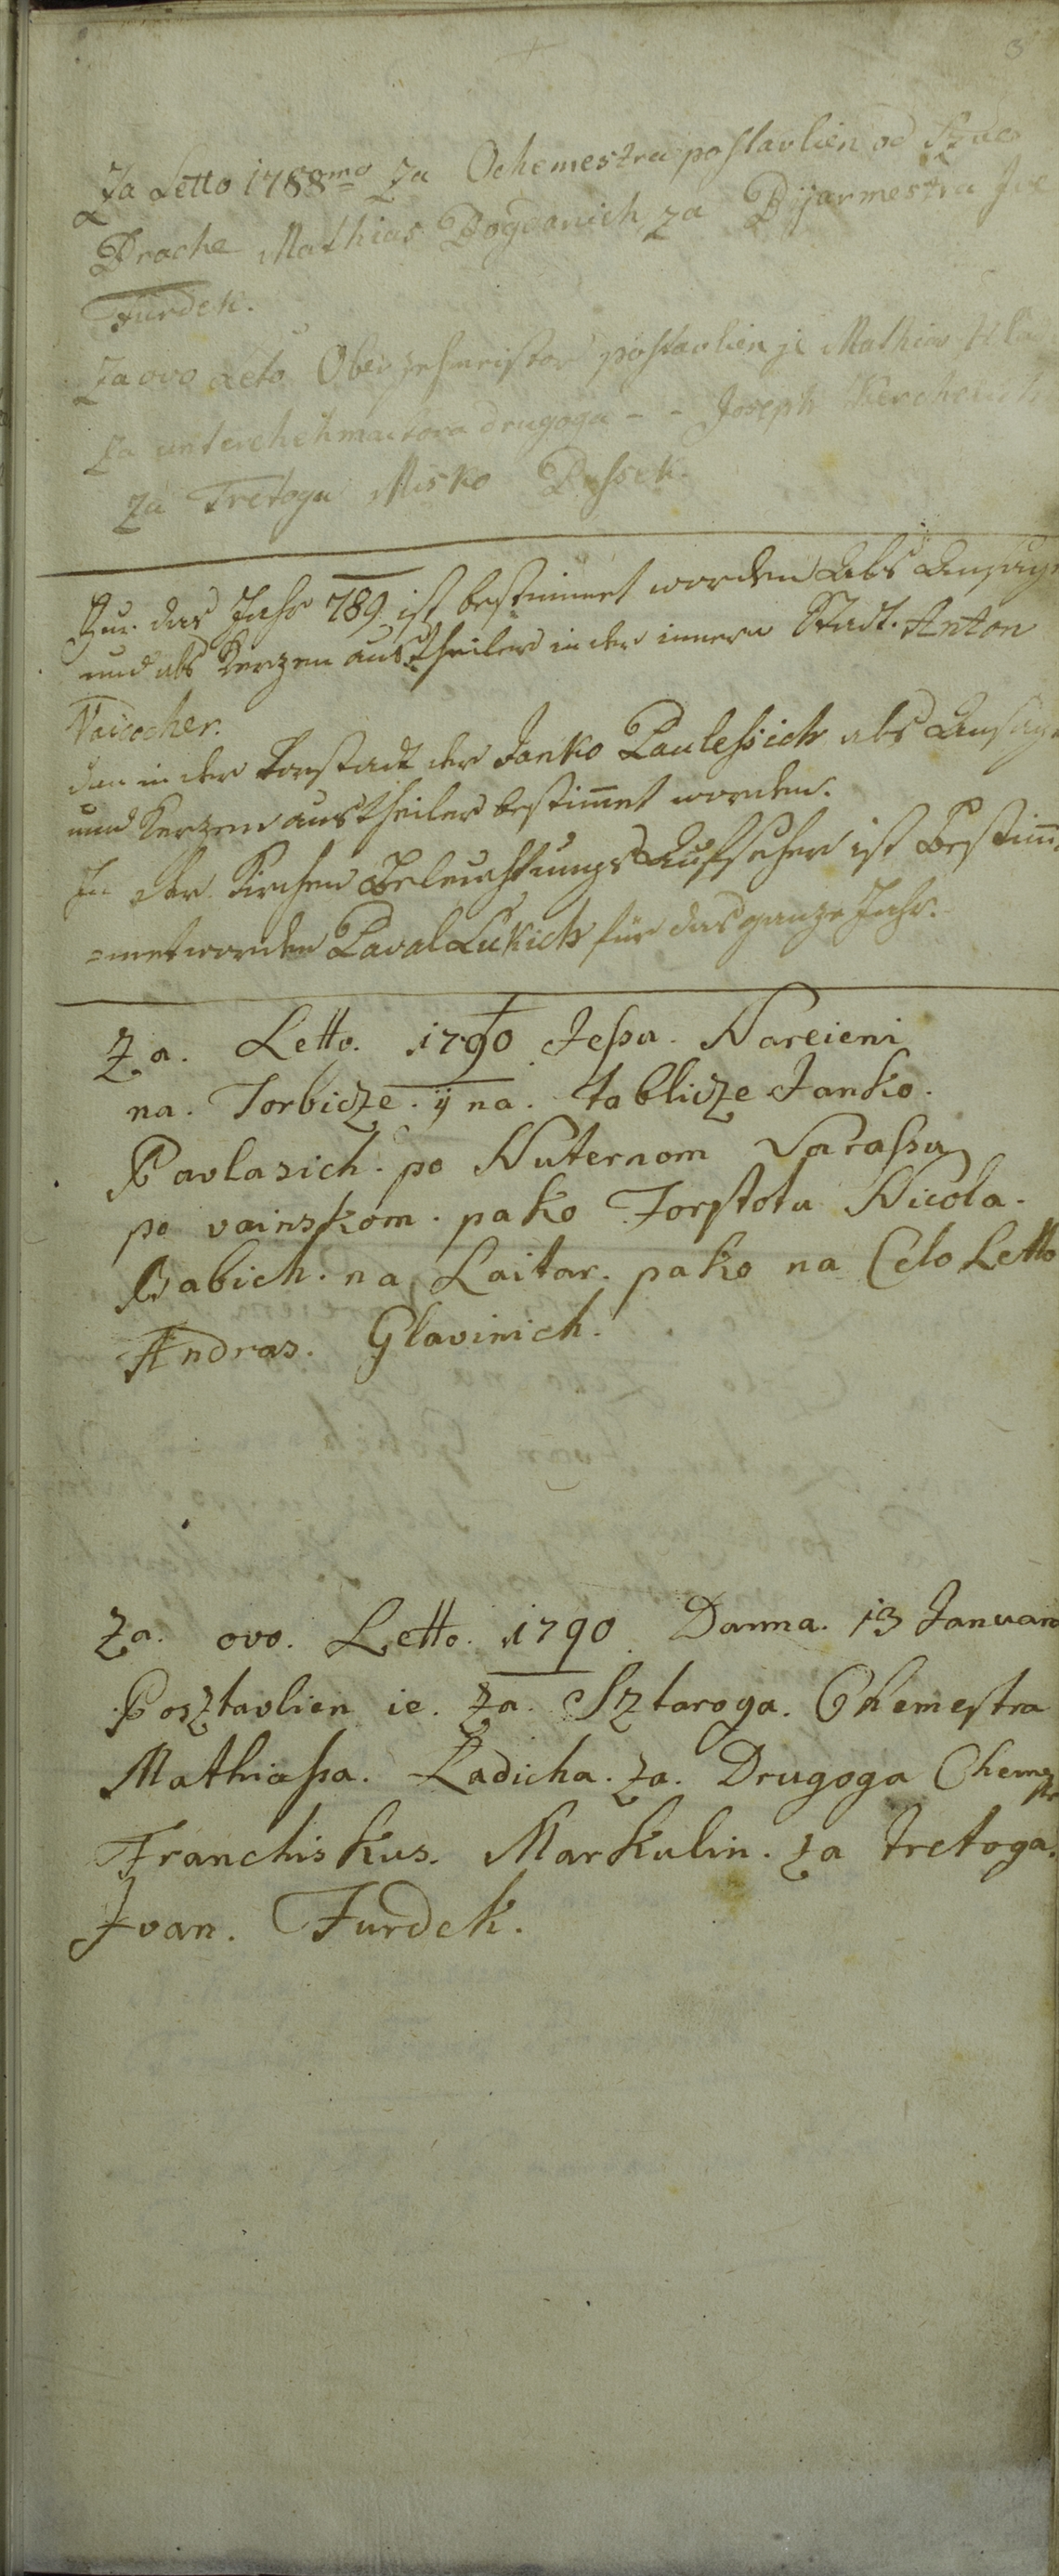 3
Za Letto 1788mo Za Ochemestra postavlien od
Brache Mathias Bogdanich, za Bijarmestra
Furdek.
Za ovo Leto Oberzehmeister postavlien je Mathias
Za unterchehmaistora drugoga - - Joseph Kerchelich
Za Tretoga Misko Dussek.
Für das Jahr 789 ist bestimmet worden Als Ansag
und als Kerzen austheiler in der innern Stadt. Anton
Vaidocher.
dan in der Vorstadt der Janko Paulessich als Ansag
und Kerzen austheiler bestimmet worden.
In der Kirchen Beleuchtungs Aufseher ist Bestim
=met worden Paval Lukich für das ganze Jahr.
Za. Letto. 1790 Jessu. Nareieni
na. Torbicze. ij na. tablicze Janko.
Pavlasich. po Nuternom Varassu
po vainskom. pako Forstotu Nicola.
Babich. na Laitar. pako na Celo Letto
Andras. Glavinich.
Za. ovo. Letto. 1790 Danna. 13 Januar
Posztavlien ie. Za. Sztaroga. Chemestra
Mathiassa. Ladicha. Za. Drugoga Chemestr
Franchiskus. Markulin. Za tretoga.
Ivan. Furdek.